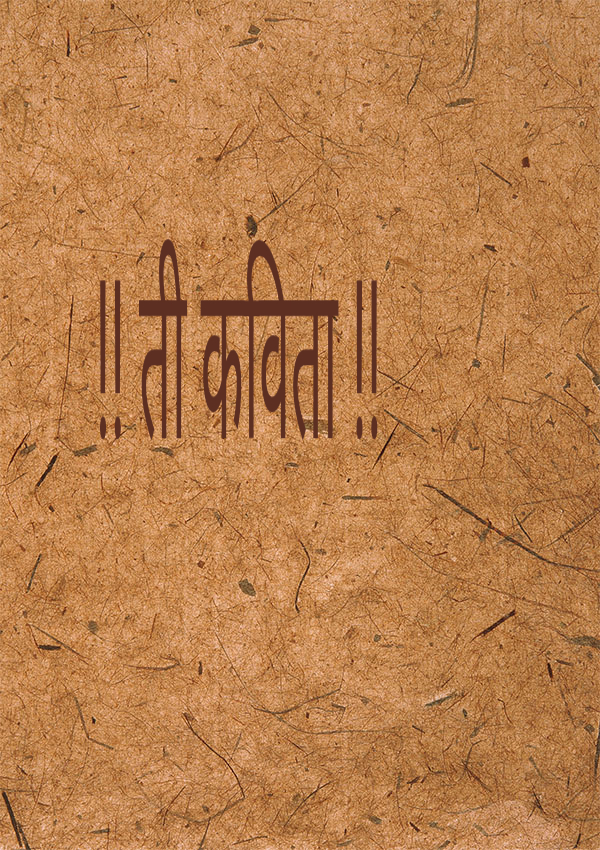 !! ती कविता !!